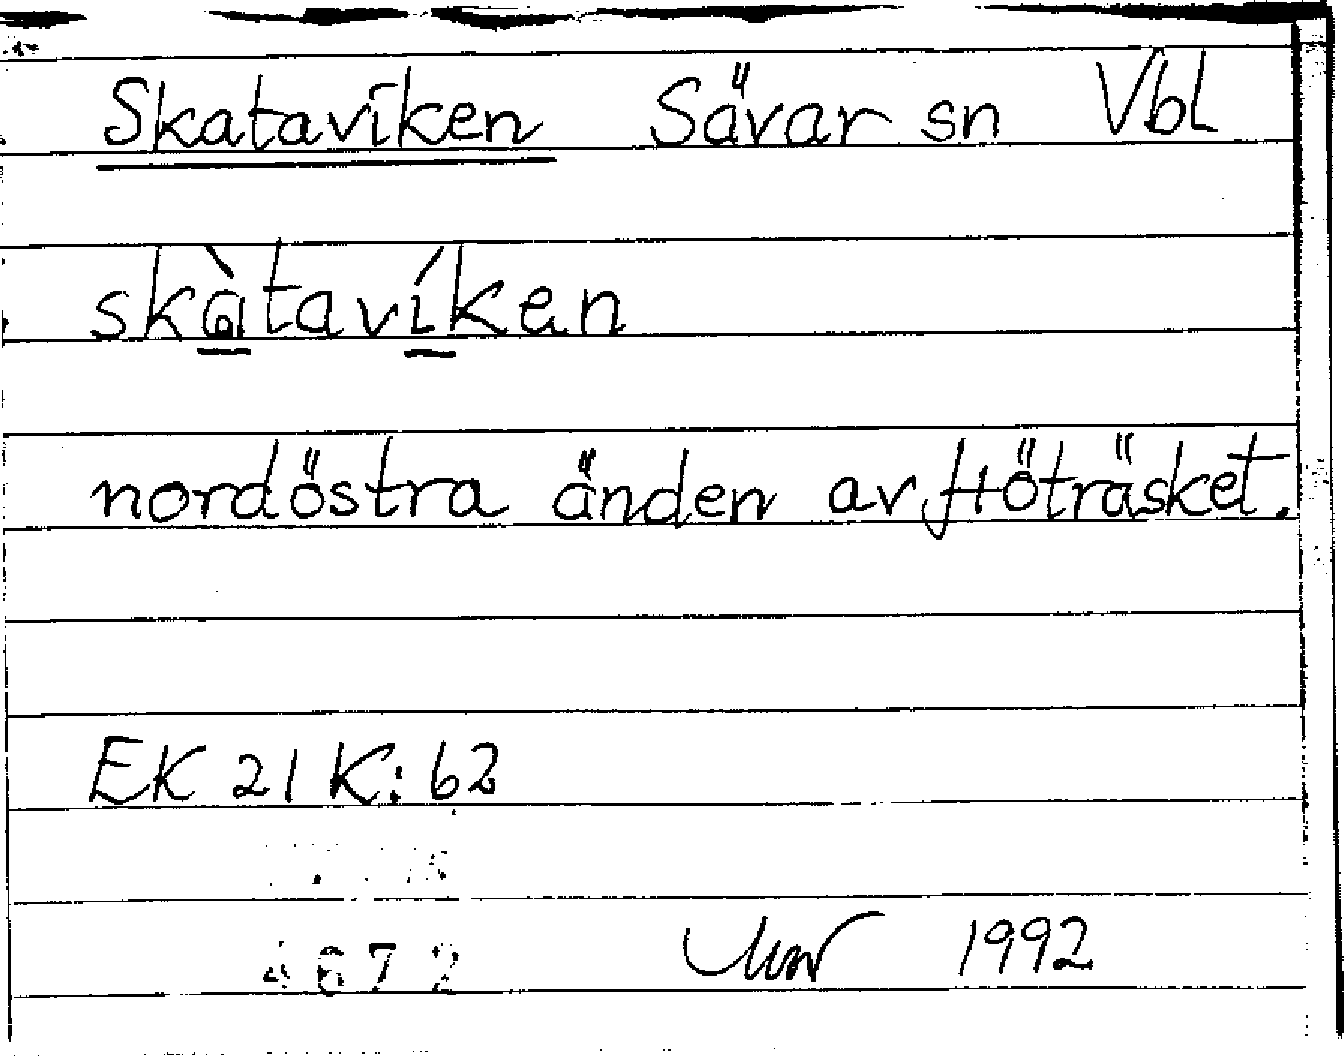 Skataviken Sävar sn Vbl
skàtavíken
nordöstra änden av Höträsket.
EK 21 K: 62
4672
1992